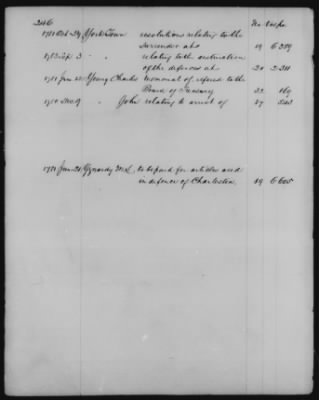 246
No Vol Pa
1781 Oct 29 York Town resolutions relating to the
surrender at &c 19 6 339
1782 Sep 3 " relating to the destination
of the defences at 20 2 311
1781 Jan Young Charles memorial of refered to the
Board of Treasury 22 169
1780 Dec 9 " John relating to arrest of 27 543
1781 Jan 21 Yznardy to be paid for articles used
in defence of Charleston 19 6 605